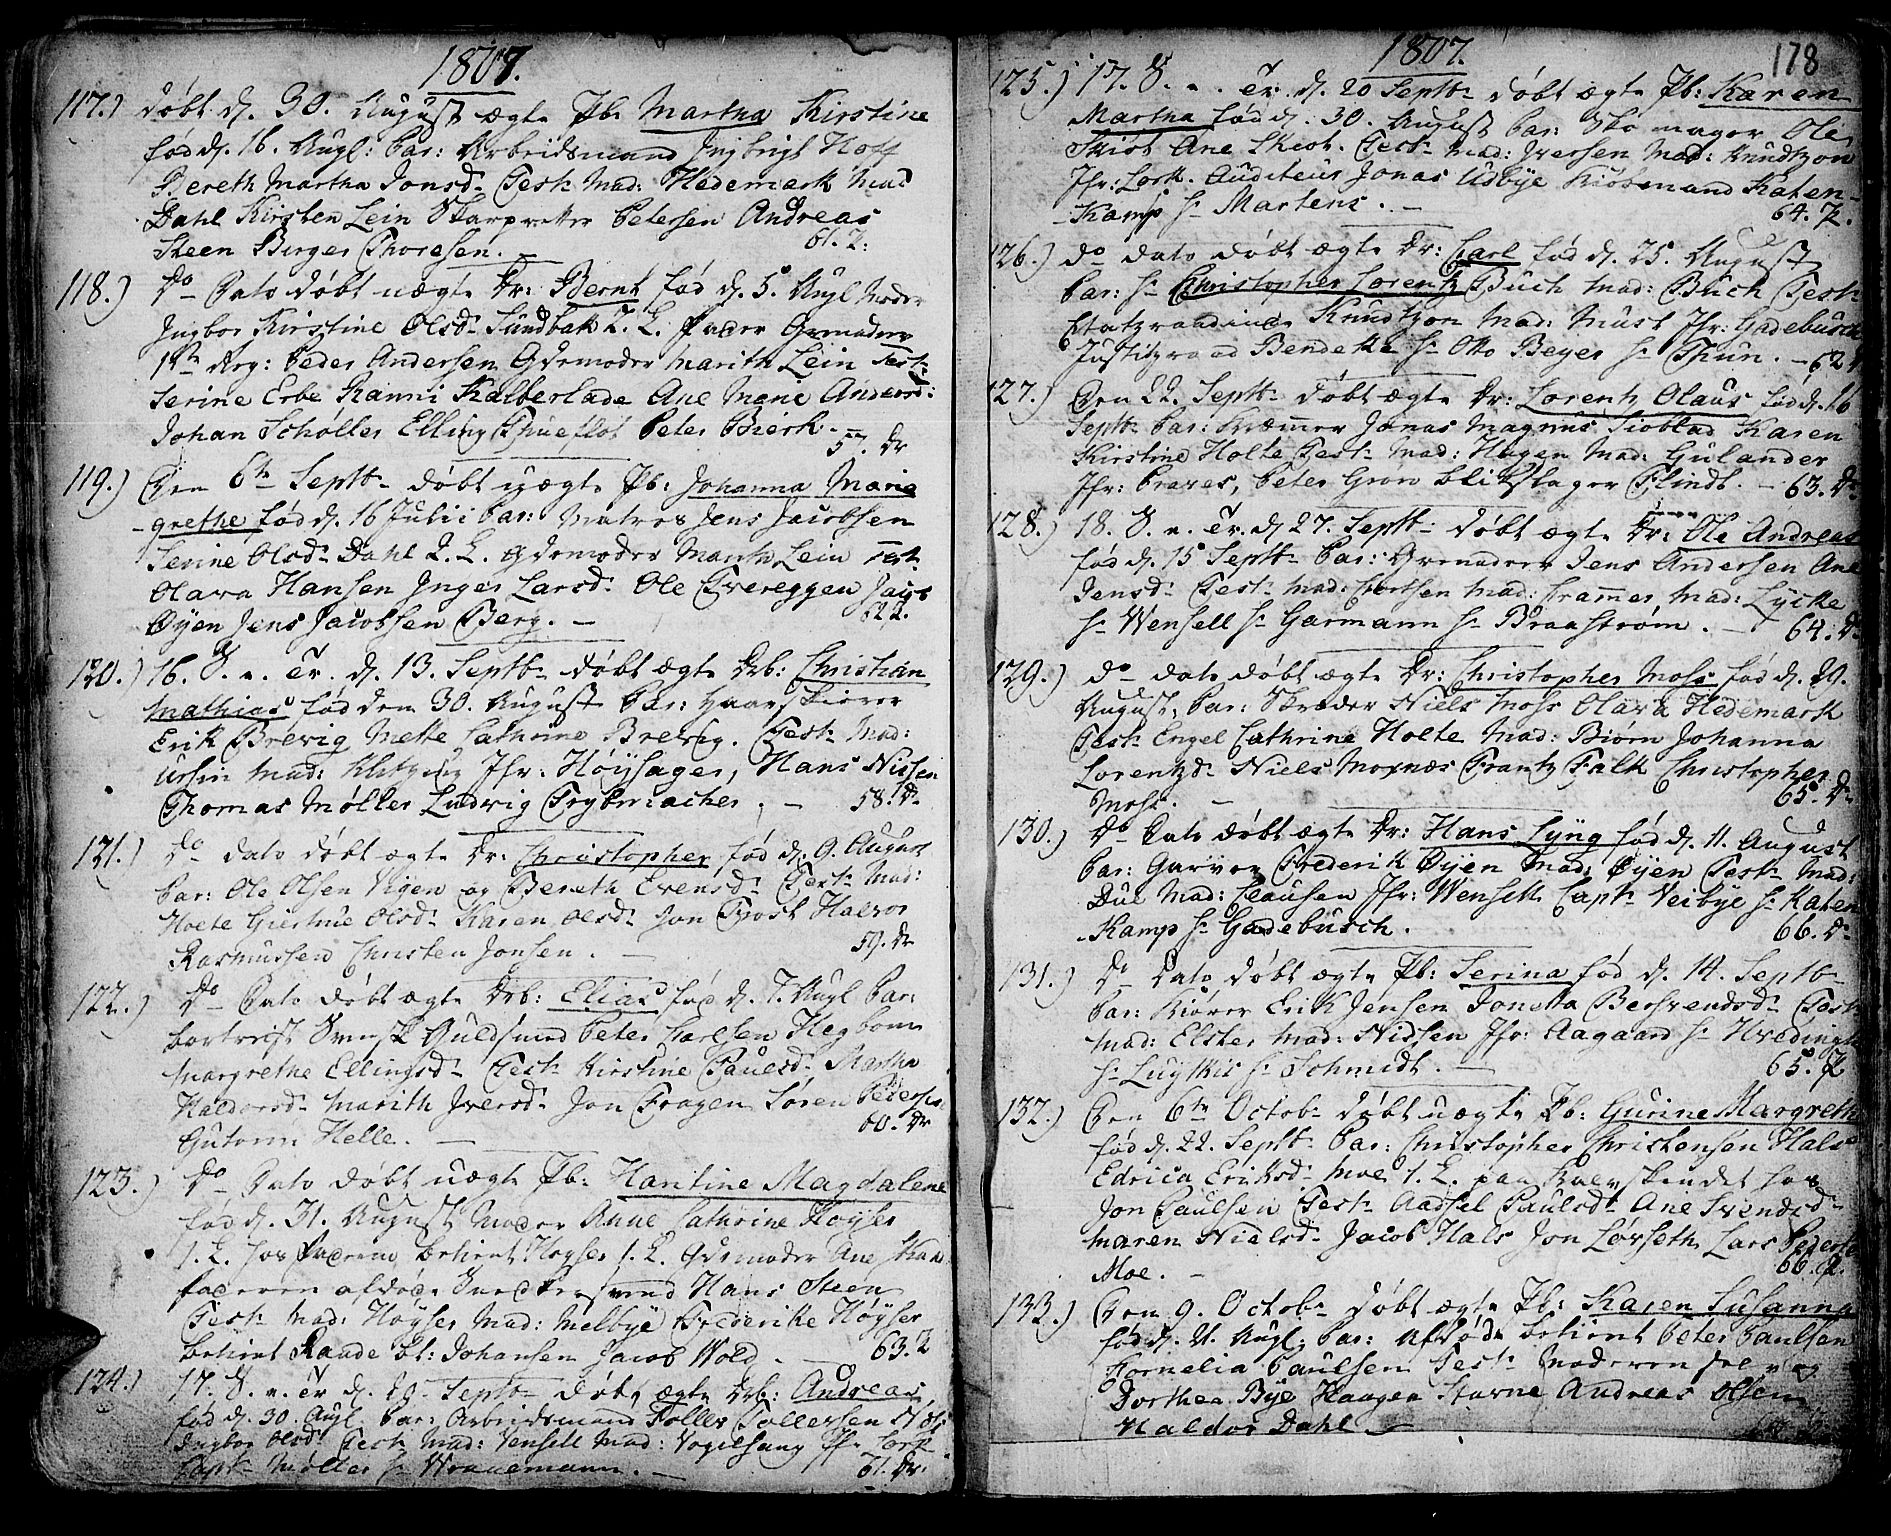 1807.
117.) døbt d. 30. August ægte Pb: Martha Kirstine
fød d. 16. Augl: Par: Arbeidsmand Ingbrigt Hoff
Bereth Martha Jonsd. Test. Mad: Hedemark Mad
Dahl Kirsten Lein Skarpretter Petersen Andreas
Steen Birger Thoresen. –
61. P.
118.) Do Dato døbt uægte Dr: Bernt fød d. 5. Augl Moder
Ingbor Kirstine Olsd. Sundbak 2. L. Fader Grenader
Peder Andersen Gdemoder Marith Lein Test.
Serine Erbe Kanni Kalberlade Ane Marie Andersd:
Johan Schøller Elling Peter Bierk. –
57. Dr
119.) Den 6te Septb. døbt uægte Pb: Johanna Marie
grethe fød d. 16 Julii Par: Matros Jens Jacobsen
Serine Olsd. Dahl 2. L. Gdemoder Marith Lein Test.
Olava Hansen Inger Larsd. Ole Tvereggen
Øyen Jens Jacobsen Berg. –
62. P.
120.) 16. S. n. Tr. d. 13. Septb. døbt ægte Drb: Christian
Mathias fød den 30. August Par: Haarskierer
Erik Brevig Mette Cathrine Brevig. Test. Mad:
Ursin Mad: Klitzing Jfr: Høysager, Hans Nissen
Thomas Møller Ludvig Frybmacher. –
58. Dr
121.) Do dato døbt ægte Dr: Christopher fød d. 9. August
Par: Ole Olsen Vigen og Bereth Evensd. Test. Mad:
Holte Giertrue Olsd. Karen Olsd. Jon Trost Halvor
Rasmussen Christen Jonsen. –
59. Dr
122.) Do Dato døbt ægte Drb: Elias fød d. 7. Augl Par:
bortreist Svensk Guldsmed Peter Carlsen Hegbom
Margrethe Ellingsd. Test. Kirstine Paulsd. Martha
Haldorsd. Marith Iversd. Jon Fragen Søren Pedersen
Gutorm Helle. –
60. Dr
123.) Do Dato døbt uægte Pb: Hantine Magdalene
fød d. 31. August Moder Anne Cathrine Høyser
1. L. hos Faderen betient Høyser 1. L. Gdemoder Ane
faderen afdøde Hans Steen
Test. Mad: Høyser Mad: Melbye Frederike Høyser
betient Rande bt: Johansen Jacob Wold. –
63. P
124.) 17. S. n. Tr. d. 20. Septb. døbt ægte Drb: Andreas
fød d. 30. Augl. Par: Arbeidsmand Toller Tollersen
Ingbor Olsd. Test. Mad: Vensell Mad: Vogelsang Jfr Lorck
Capt. Møller Hr Wrauemann. –
61. Dr.
1807.
178
125.) 17. S. n. Tr. d. 20 Septb. døbt ægte Pb: Karen
Martha fød d. 30. August Par: Skomager Ole
Skiøt Ane Skiøt. Test. Mad: Iversen Mad: Knudtzon
Jfr: Lork. Auditeur Jonas Udbye Kiøbmand Katen-
Kamp Hr Martens. –
64. P.
126.) do dato døbt ægte Dr: Carl fød d. 25. August
Par: Hr Christopher Lorentz Buch Mad: Buch Test.
Etatzraadinde Knudtzon Mad: Must Jfr: Gadebusch
Justitzraad Bendeke Hr Otto Beyer Hr Thun. – 62
127.) Den 22. Septb. døbt ægte Dr: Lorentz Olaus fød d. 16
Septb. Par: Kræmmer Jonas Magnus Sioblad Karen
Kirstine Holte Test. Mad: Hagen Mad: Gulander
Jfr: Graves, Peter Grøn blikslager Flindt. – 63. Dr
128.) 18. S. n. Tr. d 27. Septb. døbt ægte Dr: Ole Andreas
fød d. 15 Septb. Par: Grenadeer Jens Andersen Ane
Jensd. Test. Mad: Mad: Cramer Mad: Lycke
Hr Wensell Hr Garmann Hr Braastrøm. –
64. Dr
129.) do dato døbt ægte Dr: Christopher Moss fød d. 29.
August. Par: Skreder Niels Moss Olava Hedemark
Test. Engel Cathrine Holte Mad: Biørn Johanna
Lorentzd. Niels Moxnæs Frantz Falk Christopher
Moss. –
65. Dr
130.) Do Dato døbt ægte Dr: Hans Lyng fød d. 11. August
Par: Garver Frederik Øyen Mad: Øyen Test. Mad:
Due Mad: Clausen Jfr: Wensell Capt. Veibye Hr Katen
Kamp Hr Gadebusch.
66. Dr
131.) Do Dato døbt ægte Pb: Serina fød d. 14. Septb.
Par: Kiører Erik Jensen Jonetta Bersvendsd. Test.
Mad: Elster Mad: Nissen Jfr: Aagaard Hr Hveding
Hr Luytkis Hr Schmidt. –
65. P
132.) Den 6te Octob. døbt uægte Pb: Gurine Margreth
fød d. 22. Septb. Par: Christopher Christensen Hals
Edrica Eriksd. Moe 1. L. paa Kalvskindet hos
Jon Paulsen Test. Aadsel Paulsd. Ane Svendsd.
Maren Nielsd. Jacob Hals Jon Løvseth Lars Peders
Moe. –
66. P.
133.) Den 9. Octob. døbt ægte Pb: Karen Susanna
fød d. 21. Augl. Par: Afdøde betient Peter Paulsen
Kornelia Paulsen Test. Moderen selv og
Dorthea Bye Haagen Starne Andreas Olsen
Haldor Dahl –